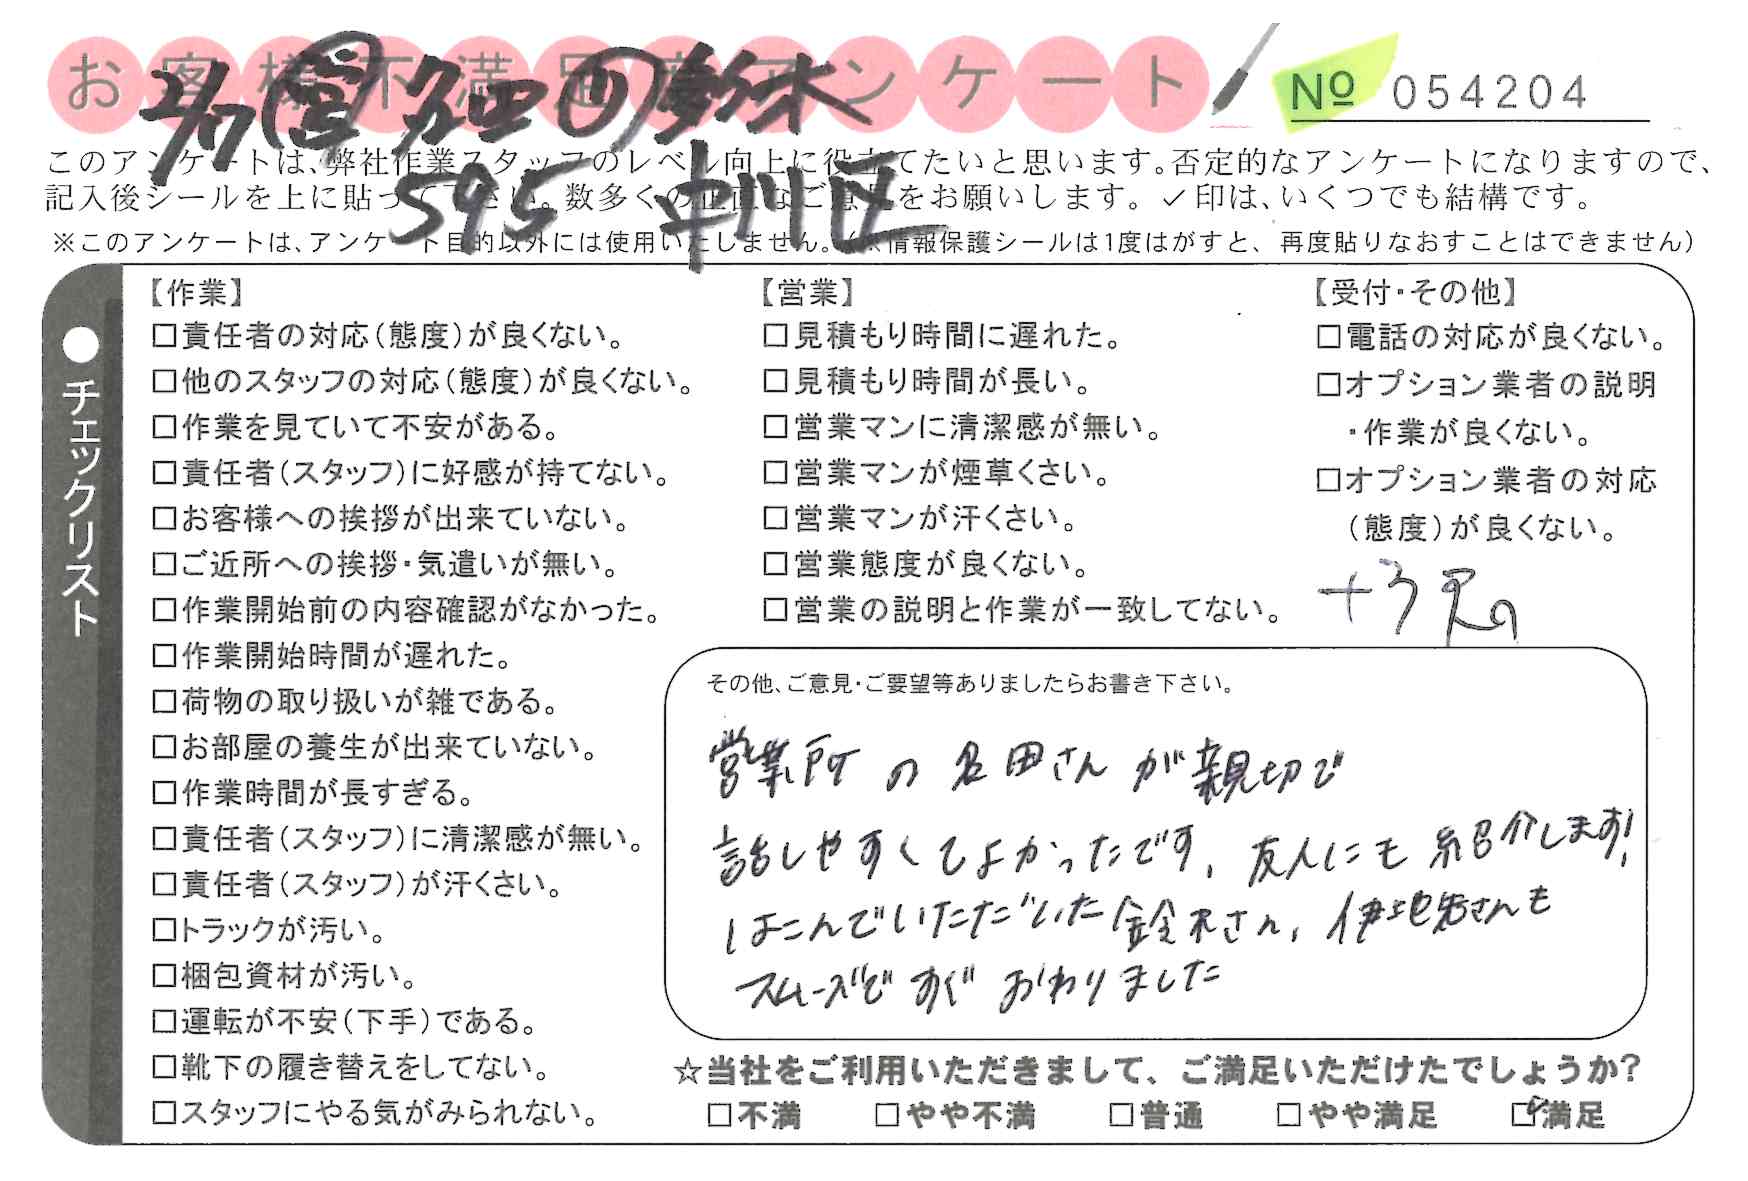 お客様不満足度アンケート
No 054204
2/7 営 鈴木
595 中川区
このアンケートは、弊社作業スタッフのレベル向上に役立てたいと思います。否定的なアンケートになりますので、
記入後シールを上に貼って下さい。数多くの正直なご意見をお願いします。✓印は、いくつでも結構です。
※このアンケートは、アンケート目的以外には使用いたしません。(※情報保護シールは1度はがすと、再度貼りなおすことはできません)
●チェックリスト
【作業】
□責任者の対応(態度)が良くない。
□他のスタッフの対応(態度)が良くない。
□作業を見ていて不安がある。
□責任者(スタッフ)に好感が持てない。
□お客様への挨拶が出来ていない。
□ご近所への挨拶・気遣いが無い。
□作業開始前の内容確認がなかった。
□作業開始時間が遅れた。
□荷物の取り扱いが雑である。
□お部屋の養生が出来ていない。
□作業時間が長すぎる。
□責任者(スタッフ)に清潔感が無い。
□責任者(スタッフ)が汗くさい。
□トラックが汚い。
□梱包資材が汚い。
□運転が不安(下手)である。
□靴下の履き替えをしてない。
□スタッフにやる気がみられない。
【営業】
□見積もり時間に遅れた。
□見積もり時間が長い。
□営業マンに清潔感が無い。
□営業マンが煙草くさい。
□営業マンが汗くさい。
□営業態度が良くない。
□営業の説明と作業が一致してない。
【受付・その他】
□電話の対応が良くない。
□オプション業者の説明
・作業が良くない。
□オプション業者の対応
(態度)が良くない。
その他、ご意見・ご要望等ありましたらお書き下さい。
営業所の名田さんが親切で
話しやすくてよかったです。友人にも紹介します!
はこんでいただいた鈴木さん、伊地知さんも
スムーズですぐおわりました
☆当社をご利用いただきまして、ご満足いただけたでしょうか?
□不満 □やや不満 □普通 □やや満足 ☑満足